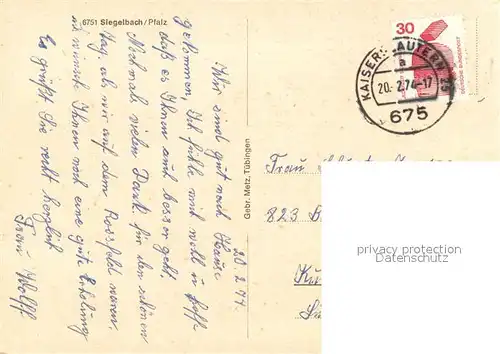 6751 Siegelbach/Pfalz
20.2.74.
Wir sind gut nach Hause
gekommen, Ich fühle mich wohl u. hoffe
daß es Ihnen auch besser geht.
Nochmals vielen Dank für den schönen
Tag, als wir auf dem Rossfeld waren.
wünsche Ihnen noch eine gute Erholung
Es grüßt Sie recht herzlich
Frau Wolff
Gebr. Metz, Tübingen
30
DEUTSCHE BUNDESPOST
KAISERSLAUTERN
a
20.-2.74-17
675
Frau
823
privacy protection